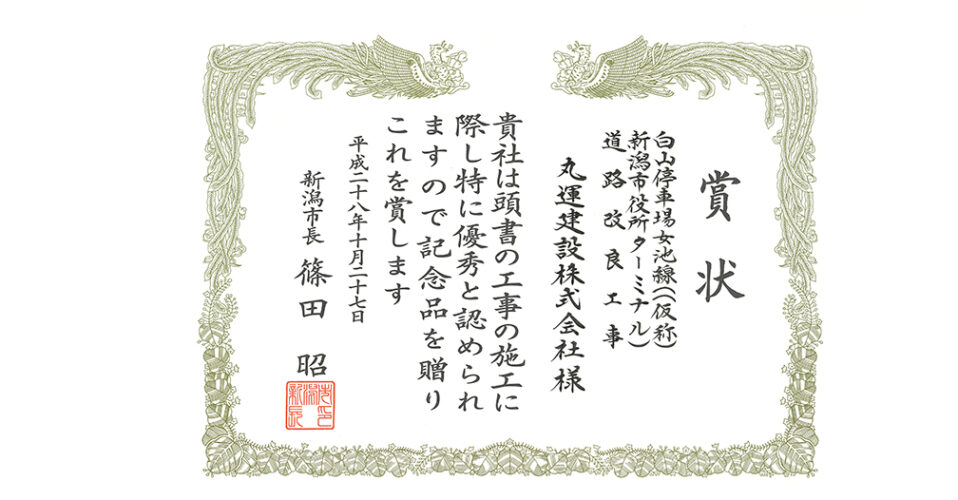 賞状
白山停車場女池線((仮称)
新潟市役所ターミナル)
道路改良工事
丸運建設株式会社様
貴社は頭書の工事の施工に
際し特に優秀と認められ
ますので記念品を贈り
これを賞します
平成二十八年十月二十七日
新潟市長 篠田 昭
新潟市長之印